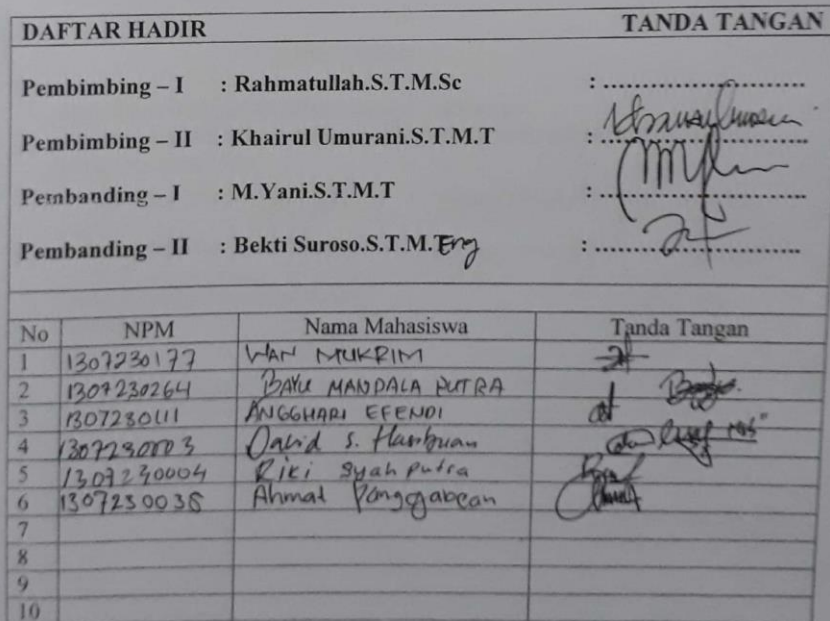 DAFTAR HADIR TANDA TANGAN
Pembimbing – I : Rahmatullah.S.T.M.Sc : ............................
Pembimbing – II : Khairul Umurani.S.T.M.T : ............................
Pembanding – I : M.Yani.S.T.M.T : ............................
Pembanding – II : Bekti Suroso.S.T.M.Eng : ............................
No NPM Nama Mahasiswa Tanda Tangan
1 1307230177 WAN MUKRIM
2 1307230264 BAYU MANDALA PUTRA
3 1307230111 ANGGHARI EFENDI
4 1307230003 David S. Hasibuan
5 1307230004 Riki Syah putra
6 1307230036 Ahmat Panggabean
7
8
9
10